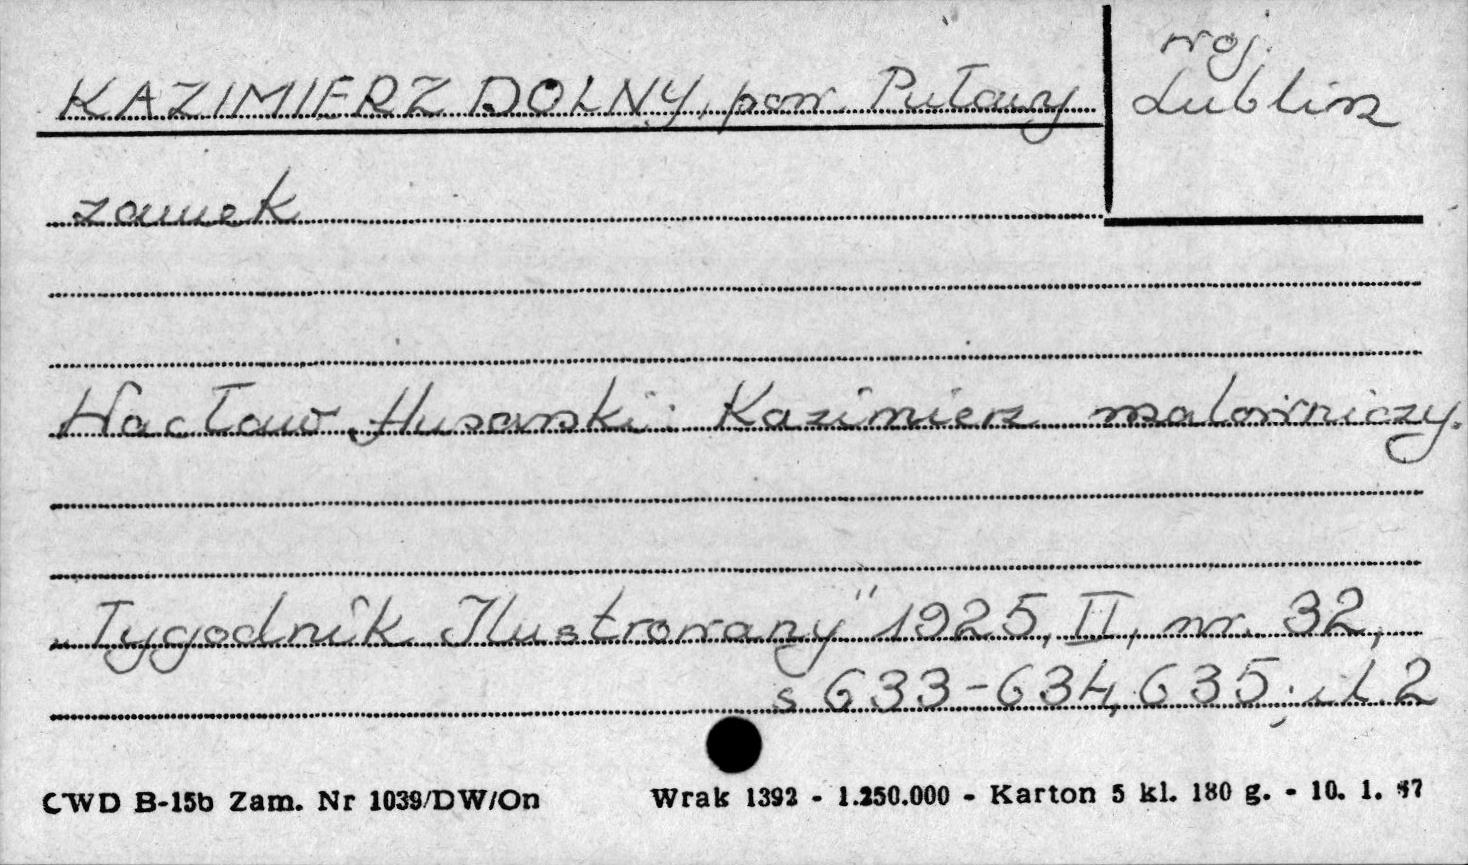 KAZIMIERZ DOLNY, pow. Puławy
woj.
Lublin
zamek
Wacław Husarski: Kazimierz malowniczy.
„Tygodnik Ilustrowany" 1925, II, nr. 32,
s 633-634, 635; il. 2
CWD B-15b Zam. Nr 1039/DW/On Wrak 1392 - 1.250.000 - Karton 5 kl. 180 g. - 10. 1.